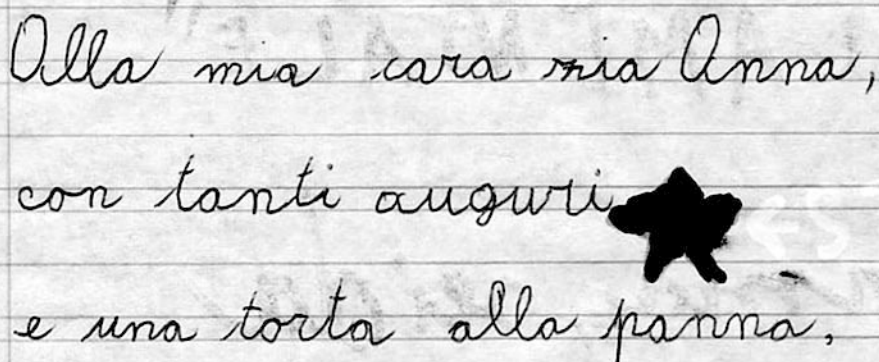 Alla mia cara zia Anna,
con tanti auguri
e una torta alla panna,